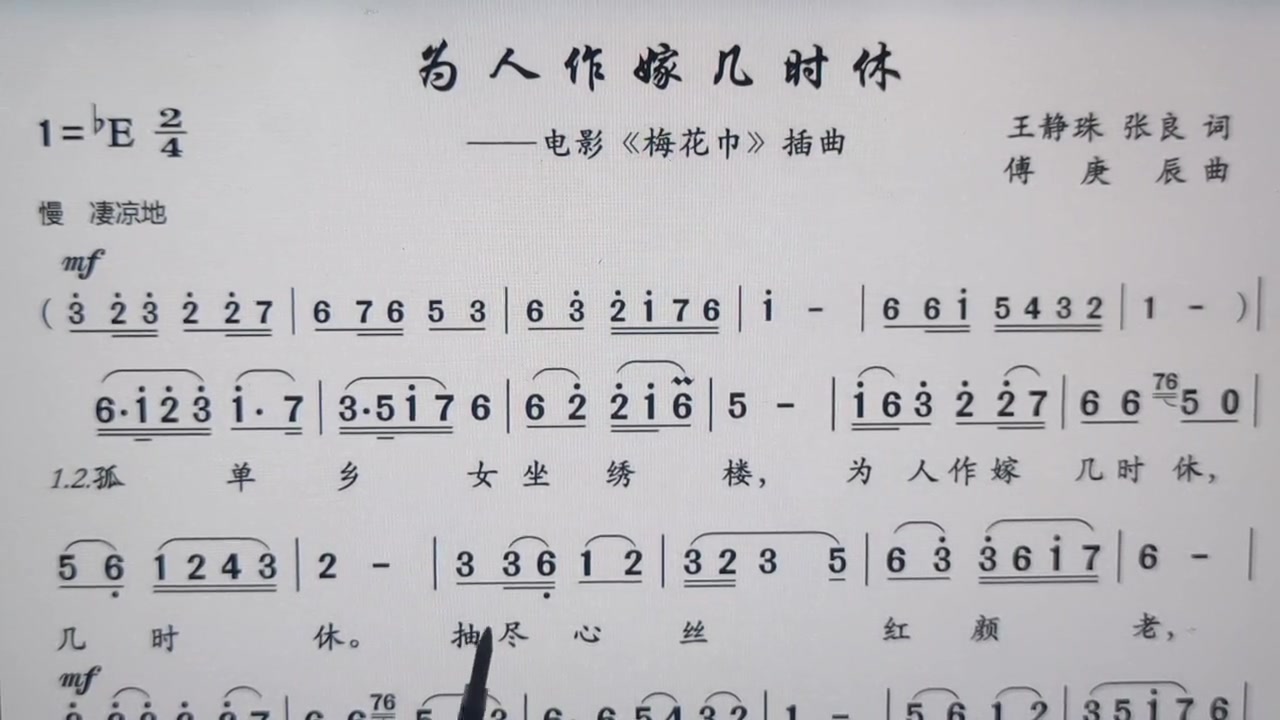 为人作嫁几时休
1=♭E 2/4
——电影《梅花巾》插曲
王静珠 张良 词
傅庚辰 曲
慢 凄凉地
mf
( 3̇ 2̇ 3̇ 2̇ 2̇ 7 | 6 7 6 5 3 | 6 3̇ 2̇ 1̇ 7 6 | 1̇ - | 6 6 1̇ 5 4 3 2 | 1 - ) |
6·1̇ 2̇ 3̇ 1̇· 7 | 3·5 1̇ 7 6 | 6 2̇ 2̇ 1̇ 6 | 5 - | 1̇ 6 3̇ 2̇ 2̇ 7 | 6 6 76 5 0 |
1.2.孤 单 乡 女 坐 绣 楼, 为 人 作 嫁 几 时 休,
5 6̣ 1 2 4 3 | 2 - | 3 3 6̣ 1 2 | 3 2 3 5 | 6 3̇ 3̇ 6 1̇ 7 | 6 - |
几 时 休。 抽 尽 心 丝 红 颜 老,
mf